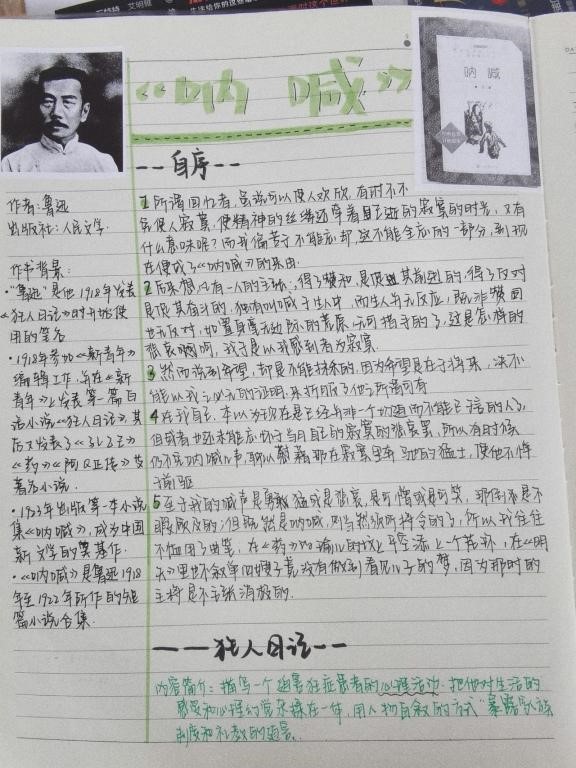 《呐喊》
呐喊
--自序--
作者:鲁迅
出版社:人民文学
作书背景:
·"鲁迅"是他1918年发表
《狂人日记》时开始使
用的笔名
·1918年参加《新青年》
编辑工作,并在《新
青年》上发表第一篇白
话小说《狂人日记》,其
后又发表了《孔乙己》
《药》《阿Q正传》等
著名小说.
·1923年出版第一本小说
集《呐喊》,成为中国
新文学的奠基作.
·《呐喊》是鲁迅1918
年至1922年所作的短
篇小说合集.
1 所谓回忆者,虽说可以使人欢欣,有时不不
免使人寂寞,使精神的丝缕还牵着己逝的寂寞的时光,又有
什么意味呢?而我偏苦于不能忘却,这不能全忘的一部分,到现
在便成了《呐喊》的来由.
2 后来想,凡有一人的主张,得了赞和,是促其前进的,得了反对
是促其奋斗的,独有叫喊于生人中,而生人并无反应,既非赞同
也无反对,如置身毫无边际的荒原,无可措手的了,这是怎样的
悲哀啊,我于是以我感到者为寂寞.
3 然而说到希望,却是不能抹杀的,因为希望是在于将来,决不
能以我之必无的证明,来折服了他之所谓可有
4 在我自己,本以为现在是已经并非一个切迫而不能已于言的人了,
但或者也还未能忘怀于当日自己的寂寞的悲哀罢,所以有时候
仍不免呐喊几声,聊以慰藉那在寂寞里奔驰的猛士,使他不惮
于前驱
5 至于我的喊声是勇猛或是悲哀,是可憎或是可笑,那倒是不
暇顾及的;但既然是呐喊,则当然须听将令的了,所以我往往
不恤用了曲笔,在《药》的瑜儿的坟上平空添上一个花环,在《明
天》里也不叙单四嫂子竟没有做到看见儿子的梦,因为那时的
主将是不主张消极的.
--狂人日记--
内容简介:描写一个迫害狂症患者的心理活动.把他对生活的
感受和心理幻觉杂揉在一体,用人物自叙的方式"暴露"家族
制度和礼教的迫害.